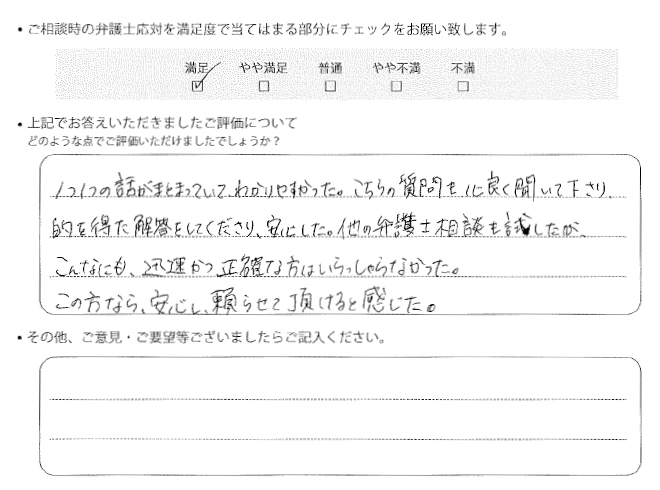 ・ご相談時の弁護士応対を満足度で当てはまる部分にチェックをお願い致します。
満足 やや満足 普通 やや不満 不満
☑ ☐ ☐ ☐ ☐
・上記でお答えいただきましたご評価について
どのような点でご評価いただけましたでしょうか？
1つ1つの話がまとまっていて、わかりやすかった。こちらの質問も 良く聞いて下さり、
的を得た解答をしてくださり、安心した。他の弁護士相談も試したが、
こんなにも、迅速かつ正確な方はいらっしゃらなかった。
この方なら、安心し、頼らせて頂けると感じた。
・その他、ご意見・ご要望等ございましたらご記入ください。